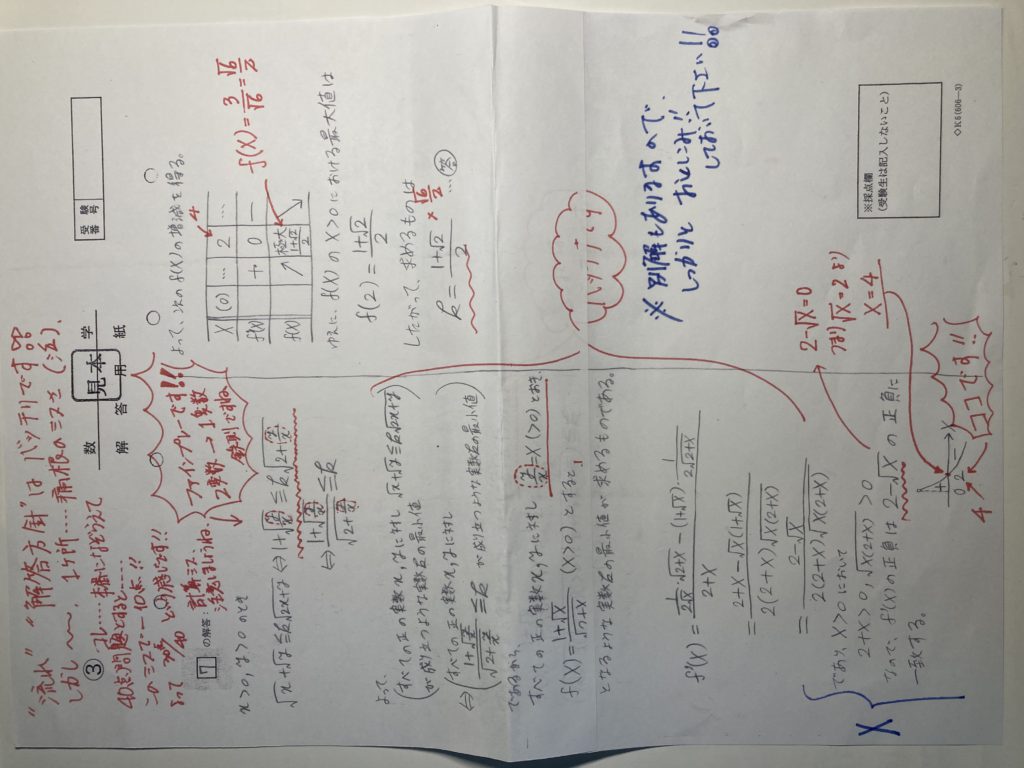 "流れ" "解答方針" はバッチリです!!
しかし〜、1ヶ所……痛恨のミスで(泣)、
③ コレ……本番になぞらえて
40点問題とすると……
このミスで −10点!!
よって 30/40 という所です!!
計算ミス、
注意しましょうね。
数 学
見本
解 答 用 紙
受験番号
7 の解答
x>0, y>0 のとき
√x+√y ≦ k√2x+y ⇔ 1+√(y/x) ≦ k√(2+y/x)
⇔ (1+√(y/x))/√(2+y/x) ≦ k
ファインプレーです!!
2変数→1変数
鉄則ですね。
よって、
(すべての正の実数x, yに対し √x+√y ≦ k√2x+y
が成り立つような実数kの最小値)
⇔ (すべての正の実数x, yに対し
(1+√(y/x))/√(2+y/x) ≦ k が成り立つような実数kの最小値)
であるから、
すべての正の実数x, yに対し y/x = X (>0) とおき、
f(X) = (1+√X)/√(2+X) (X>0) とすると、
となるような実数kの最小値が求めるものである。
f'(X) = (1/(2√X)・√(2+X) − (1+√X)・1/(2√(2+X)))/(2+X)
= (2+X−√X(1+√X))/(2(2+X)√X(2+X))
= (2−√X)/(2(2+X)√X(2+X))
であり、X>0 において
2+X>0, √X(2+X) >0
なので、f'(X)の正負は 2−√X の正負に
一致する。
X
2−√X=0
つまり √X=2 より
X=4
ココです!!
4
よって、次のf(X)の増減を得る。
X (0) … 2 …
f'(X) + 0 −
f(X) ↗ 極大 (1+√2)/2 ↘
4
f(X) = 3/√6 = √6/2
ゆえに、f(X)のX>0における最大値は
f(2) = (1+√2)/2
したがって、求めるものは
k = (1+√2)/2 … 答
× √6/2
バッチリ
※別解もありますので、
しっかりと おとしこみ!!
しておいて下さい!!
※採点欄
(受験生は記入しないこと)
◇K5(606—3)